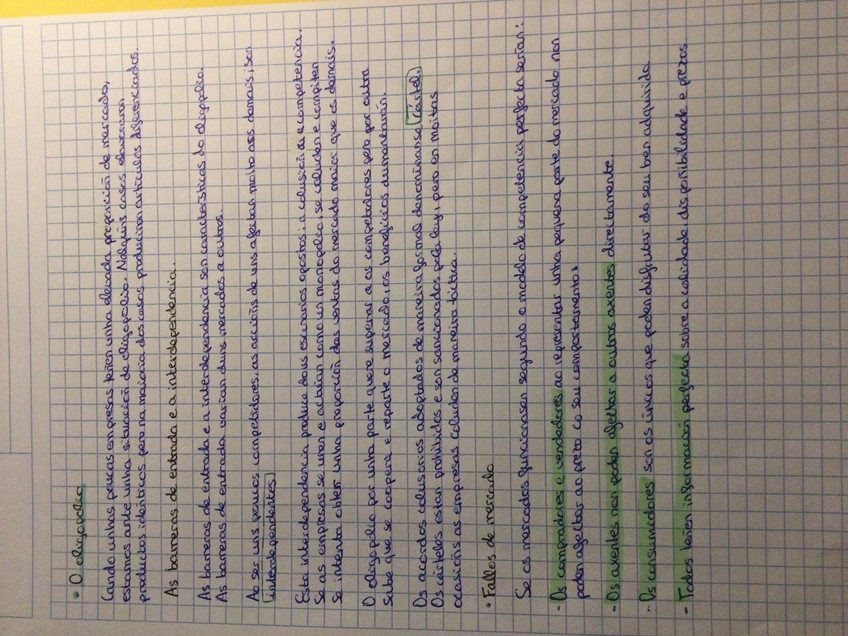 • O oligopolio
Cando unhas poucas empresas teñen unha elevada proporción de mercado,
estamos ante unha situación de oligopolio. Nalgúns casos elaboran
productos idénticos pero na maioría dos casos producirán artículos diferenciados.
As barreras de entrada e a interdependencia.
As barreras de entrada e a interdependencia son características do oligopolio.
As barreras de entrada varían duns mercados a outros.
Ao ser uns poucos competidores, as accións de uns afectan moito aos demais, son
interdependentes
Esta interdependencia produce dous escenarios opostos: a colusión e a competencia.
Se as empresas se unen e actúan como un monopolio, se coluden e compiten
se intenta obter unha proporción das ventas do mercado maior que os demais.
O oligopolio por unha parte quere superar a os competidores pero por outra
sabe que se coopera e reparte o mercado, os beneficios aumentarán.
Os acordos colusorios adoptados de maneira formal denomínanse cártel.
Os cárteles están prohibidos e son sancionados pola ley, pero en moitas
ocasións as empresas coluden de maneira táctica.
• Fallos de mercado
Se os mercados funcionasen segundo o modelo de competencia perfecta serían:
- Os compradores e vendedores ao representar unha pequena parte do mercado non
poden afectar ao prezo co seu comportamento.
- Os axentes non poden afectar a outros axentes directamente.
- Os consumidores son os únicos que poden disfrutar do seu ben adquirido
- Todos teñen información perfecta sobre a calidade, dispoñibilidade e prezos.